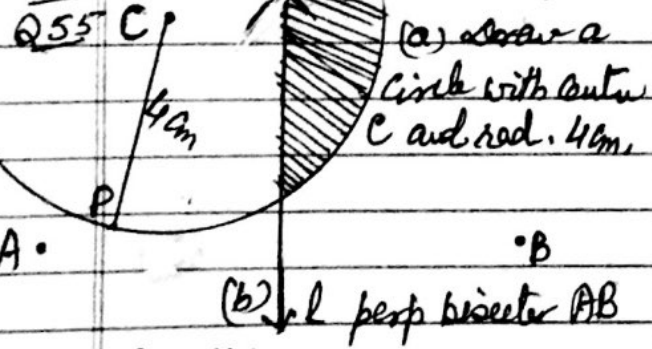 Q55 C
(a) Draw a
circle with centre
C and rad. 4cm.
4cm
P
A
B
(b) l perp bisector AB